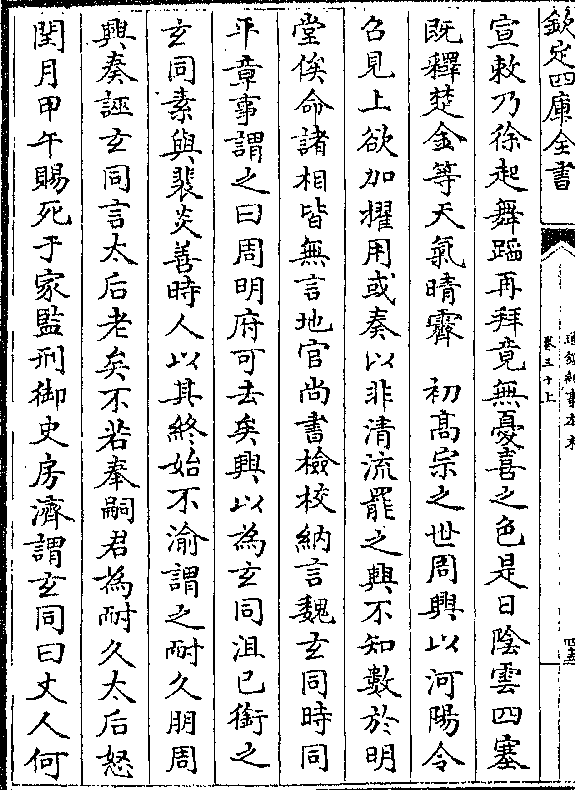 欽定四庫全書
通鑑紀事本末
卷三十上
四五
宣敕乃徐起舞蹈再拜竟無憂喜之色是日陰雲四塞
既釋楚金等天氣晴霽　初高宗之世周興以河陽令
召見上欲加擢用或奏以非清流罷之興不知數於明
堂俟命諸相皆無言地官尚書檢校納言魏玄同時同
平章事謂之曰周明府可去矣興以為玄同沮已銜之
玄同素與裴炎善時人以其終始不渝謂之耐久朋周
興奏誣玄同言太后老矣不若奉嗣君為耐久太后怒
閏月甲午賜死于家監刑御史房濟謂玄同曰丈人何